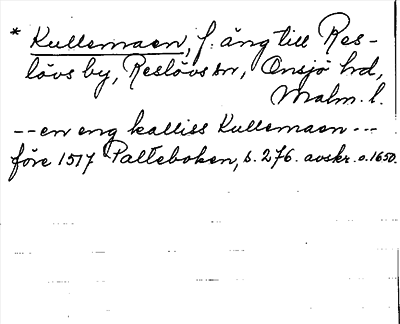 * Kullemaen, f. äng till Res-
lövs by, Reslövs sn, Onsjö hd,
Malm. l.
-- en eng kalliss Kullemaen ---
före 1517 Palteboken, s. 276. avskr. o. 1650.